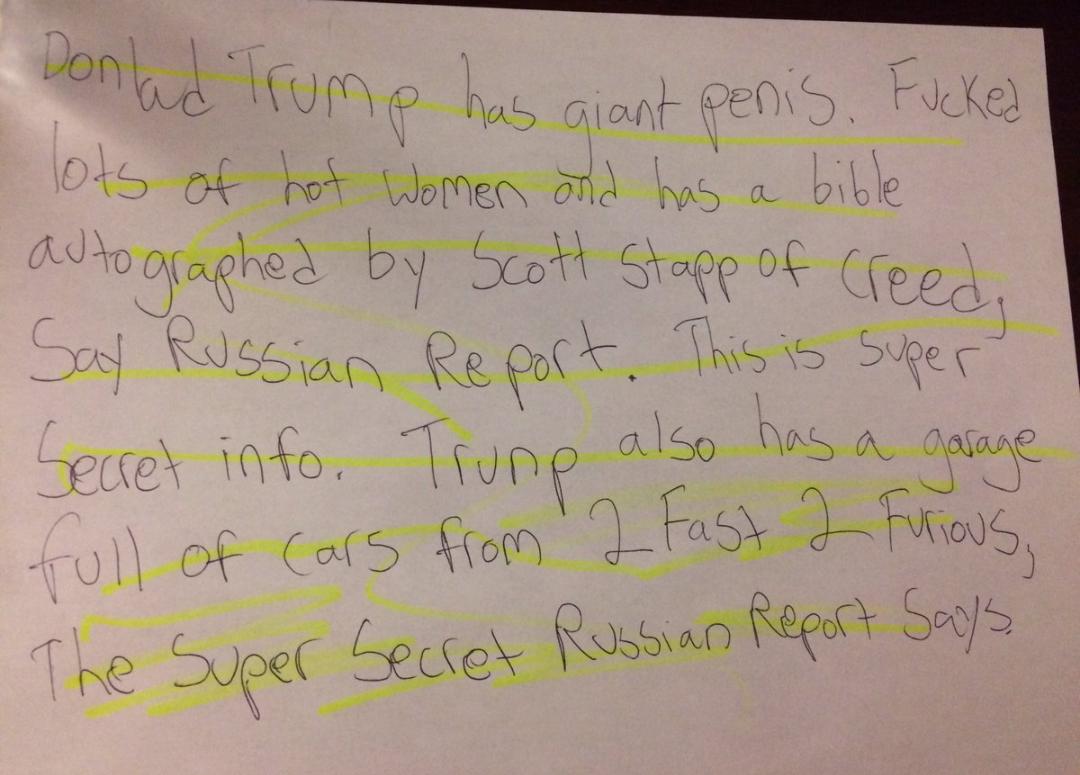 Donlad Trump has giant penis. Fucked
lots of hot women and has a bible
autographed by Scott Stapp of Creed,
Say Russian Report. This is super
Secret info. Trunp also has a garage
full of cars from 2 Fast 2 Furious,
The Super Secret Russian Report Says.